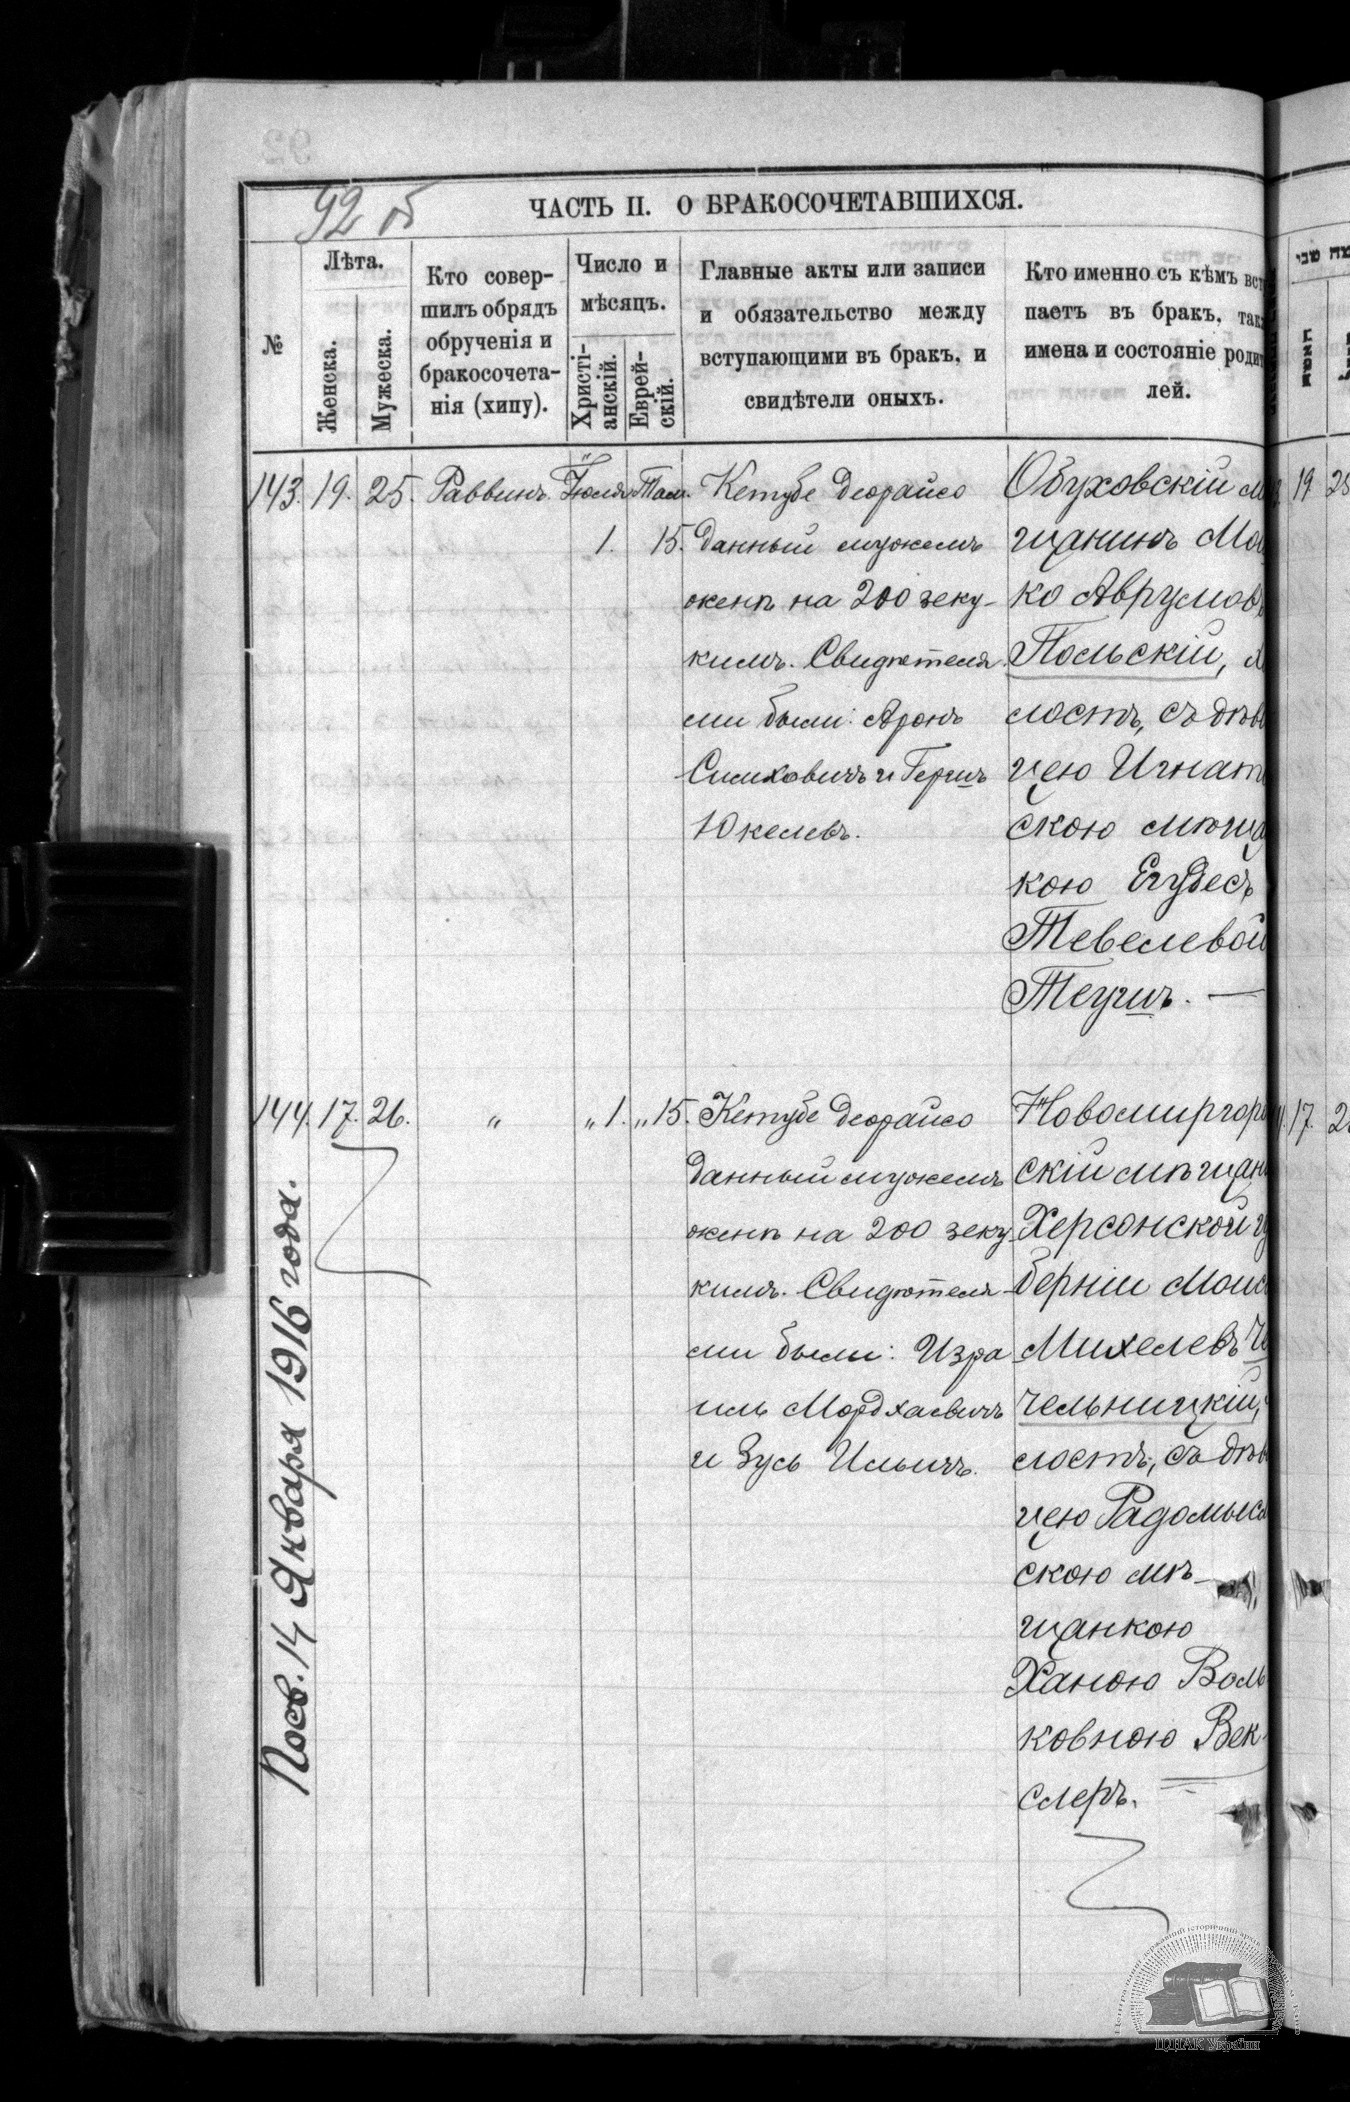 92 об
ЧАСТЬ II. О БРАКОСОЧЕТАВШИХСЯ.
№
Лѣта.
Женска.
Мужеска.
Кто совер-
шилъ обрядъ
обрученія и
бракосочета-
нія (хипу).
Число и
мѣсяцъ.
Христі-
анскій.
Еврей-
скій.
Главные акты или записи
и обязательство между
вступающими въ бракъ, и
свидѣтели оныхъ.
Кто именно съ кѣмъ вст
паетъ въ бракъ, такж
имена и состояніе родит
лей.
143. 19. 25. Раввинъ. Іюля Там.
1. 15.
Кетубе деорайсо
данный мужемъ
женѣ на 200 зеку-
кимъ. Свидѣтеля-
ми были: Аронъ
Симховичъ и Герш
Юкелевъ.
Обуховскій мѣ
щанинъ Мош
ко Аврумовъ
Польскій, хо
лостъ, съ дѣви
цею Игнатов
скою мѣщан
кою Егудесъ
Тевелевой
Теушъ. —
144. 17. 26. „ „ 1. „ 15.
Кетубе деорайсо
данный мужемъ
женѣ на 200 зеку-
кимъ. Свидѣтеля-
ми были: Изра
иль Мордхаевичъ
и Зусь Ильичъ.
Новомиргород
скій мѣщан
Херсонской гу
берніи Моис
Михелевъ Че
чельницкій,
лостъ, съ дѣви
цею Радомысл
скою мѣ-
щанкою
Ханою Воль
ковною Век-
слеръ.
Посв. 14 Января 1916 года.
19 25
17. 2
ЦДІАК України